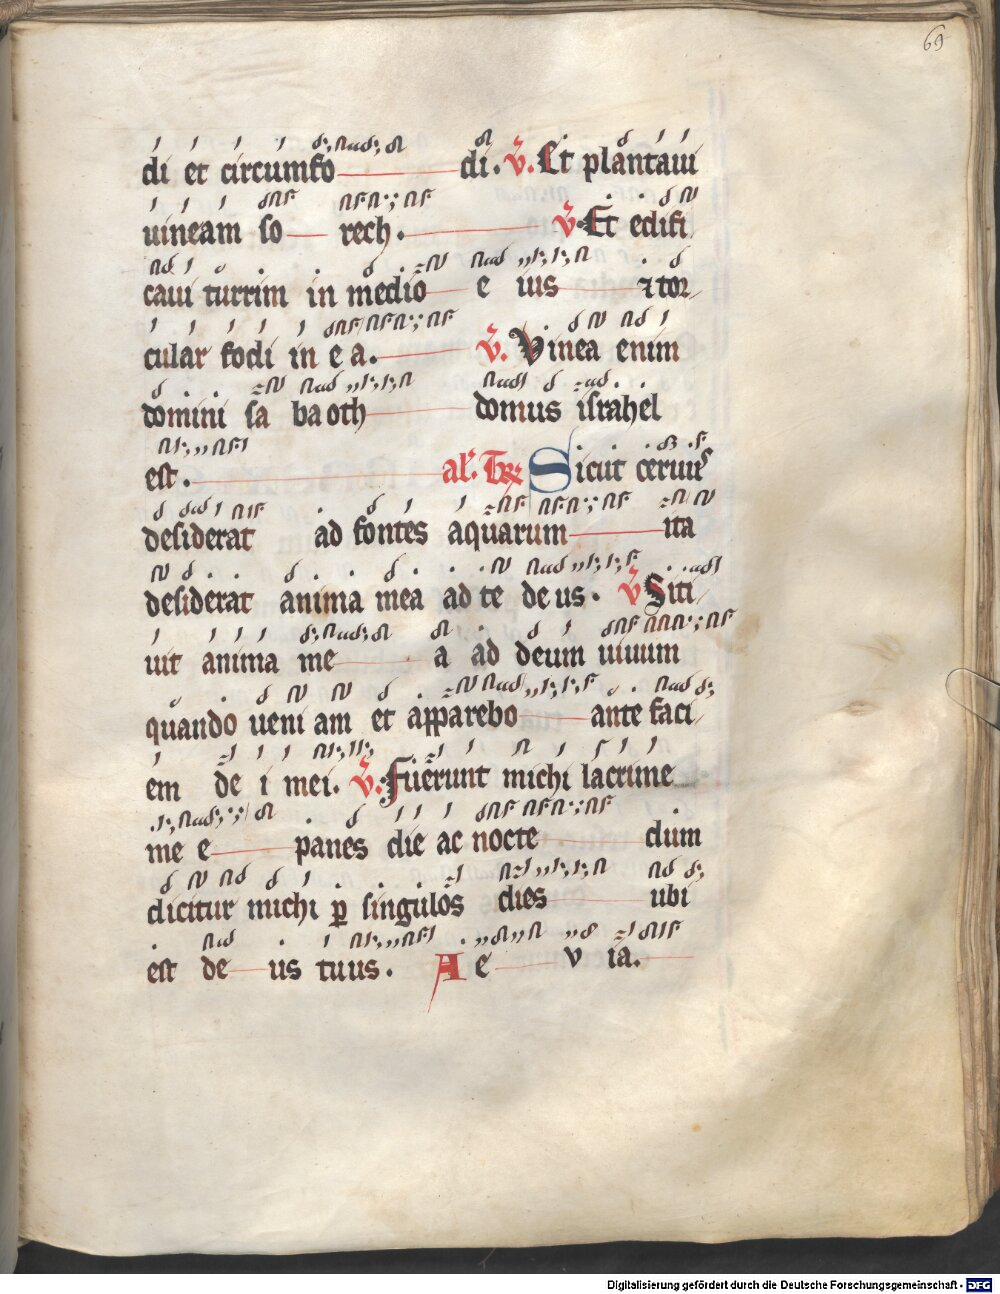 69
di et circumfo di. V. Et plantaui
uineam so rech. V. Et edifi
caui turrim in medio e ius ⁊ tor
cular fodi in e a. V. Vinea enim
domini sa ba oth domus israhel
est. al'. Tr Sicut ceruus
desiderat ad fontes aquarum ita
desiderat anima mea ad te de us. V Siti
uit anima me a ad deum uiuum
quando ueni am et apparebo ante faci
em de i mei. V. Fuerunt michi lacrime
me e panes die ac nocte dum
dicitur michi ꝑ singulos dies ubi
est de us tuus. A e v ia.
Digitalisierung gefördert durch die Deutsche Forschungsgemeinschaft - DFG